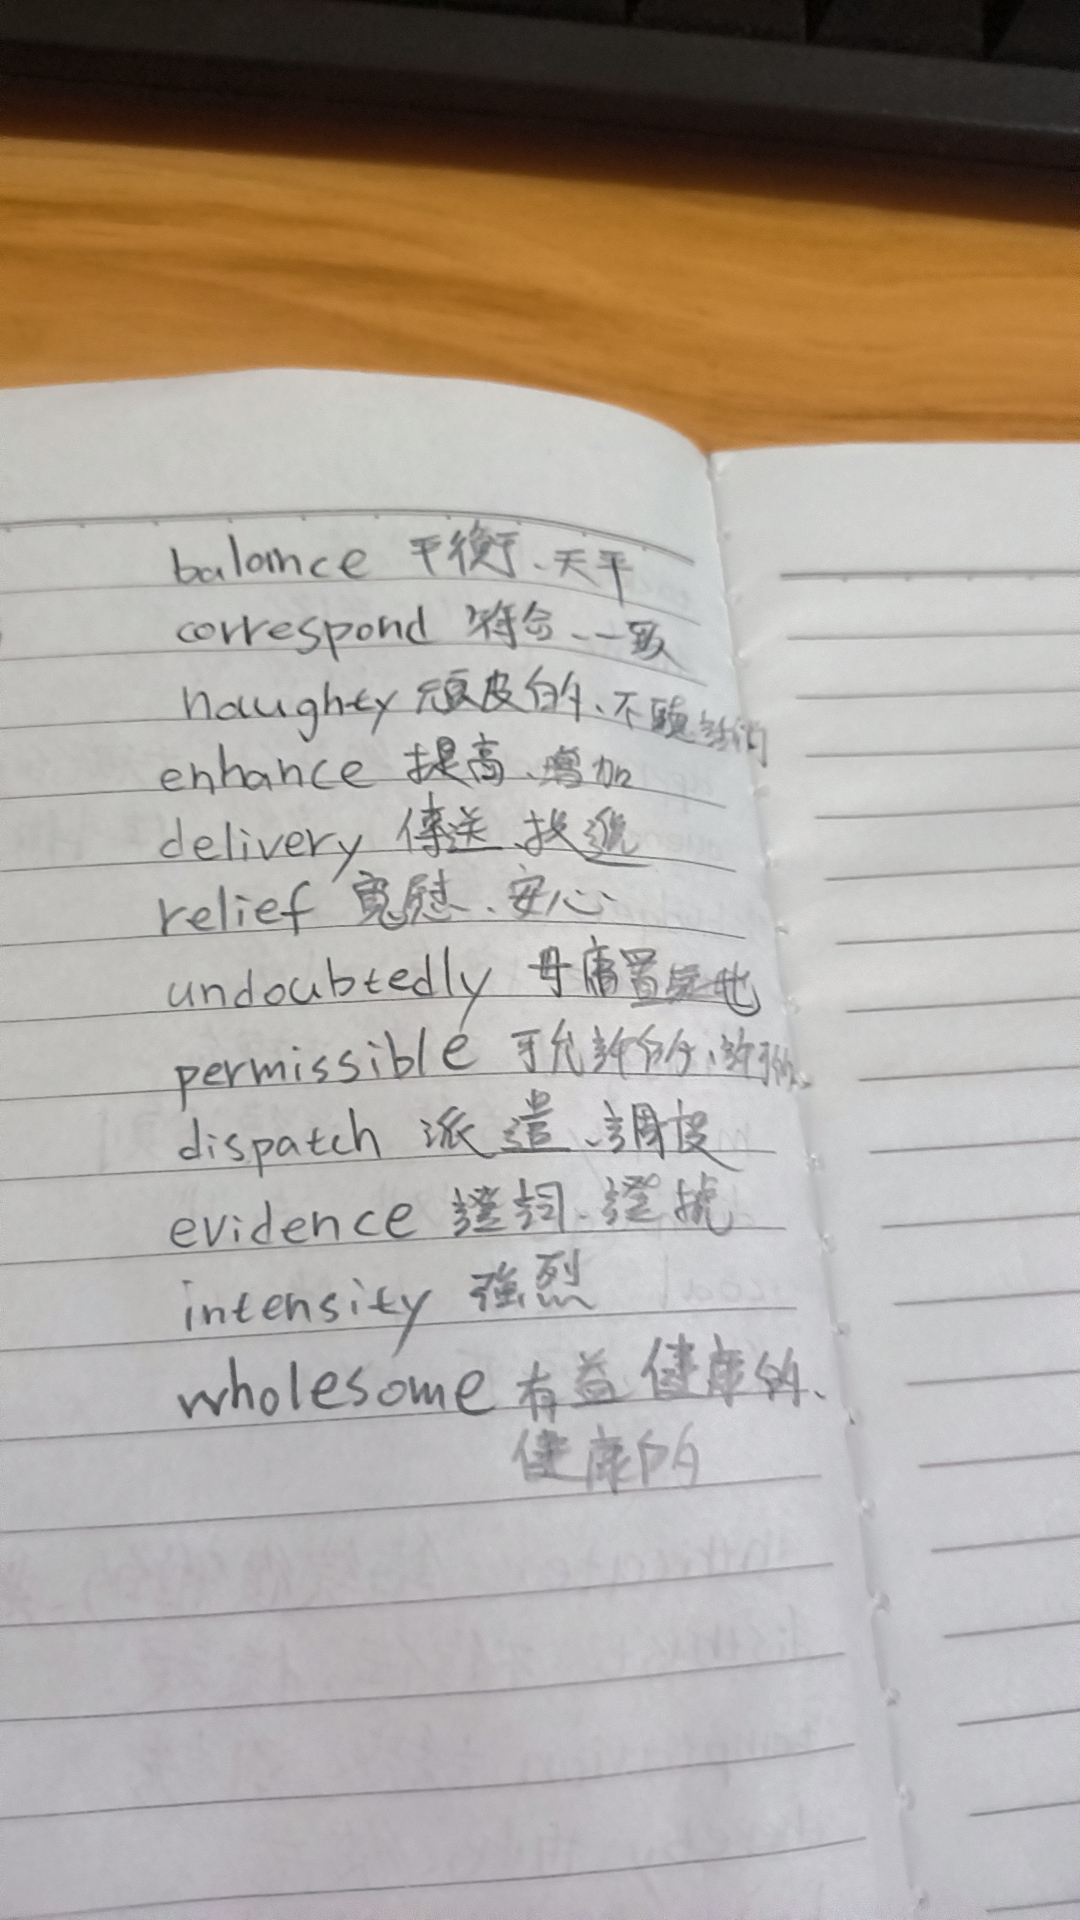 balance 平衡、天平
correspond 符合、一致
naughty 頑皮的、不聽話的
enhance 提高、增加
delivery 傳送、投遞
relief 寬慰、安心
undoubtedly 毋庸置疑地
permissible 可允許的、許可的
dispatch 派遣、調度
evidence 證詞、證據
intensity 強烈
wholesome 有益健康的、
健康的